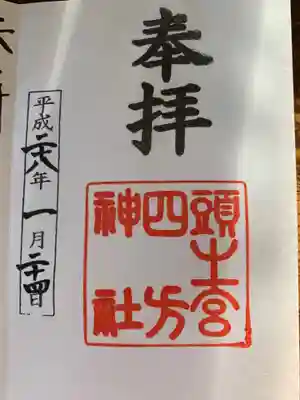 奉拝
頭之宮
四方
神社
平成二十八年一月二十四日